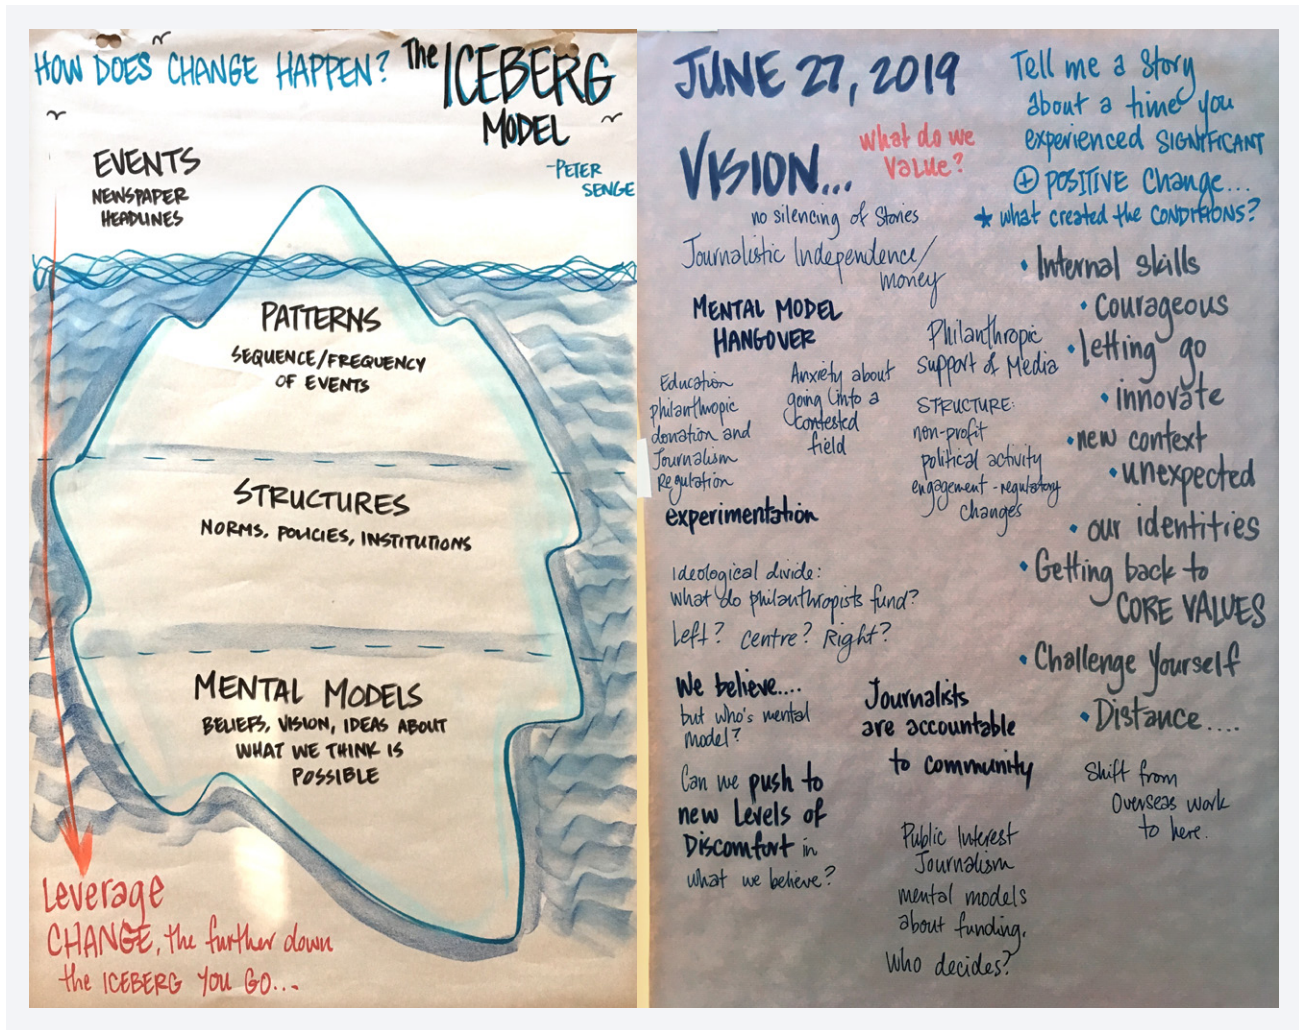 HOW DOES CHANGE HAPPEN?
The ICEBERG
MODEL
-PETER
SENGE
EVENTS
NEWSPAPER
HEADLINES
PATTERNS
SEQUENCE/FREQUENCY
OF EVENTS
STRUCTURES
NORMS, POLICIES, INSTITUTIONS
MENTAL MODELS
BELIEFS, VISION, IDEAS ABOUT
WHAT WE THINK IS
POSSIBLE
Leverage
CHANGE, the further down
the ICEBERG YOU GO...
JUNE 27, 2019
VISION...
what do we
Value?
no silencing of Stories
Journalistic Independence/
money
MENTAL MODEL
HANGOVER
Education
philanthropic
donation and
Journalism
Regulation
experimentation
Anxiety about
going into a
contested
field
Philanthropic
support of Media
STRUCTURE:
non-profit
political activity
engagement - regulatory
changes
Ideological divide:
what do philanthropists fund?
Left? Centre? Right?
We believe....
but who's mental
model?
Can we push to
new Levels of
Discomfort in
what we believe?
Journalists
are accountable
to community
Public Interest
Journalism
mental models
about funding.
Who decides?
Tell me a Story
about a time you
experienced SIGNIFICANT
⊕ POSITIVE Change...
★ what created the CONDITIONS?
• Internal skills
• Courageous
• letting go
• innovate
• new context
• unexpected
• our identities
• Getting back to
CORE VALUES
• Challenge Yourself
• Distance....
Shift from
Overseas work
to here.